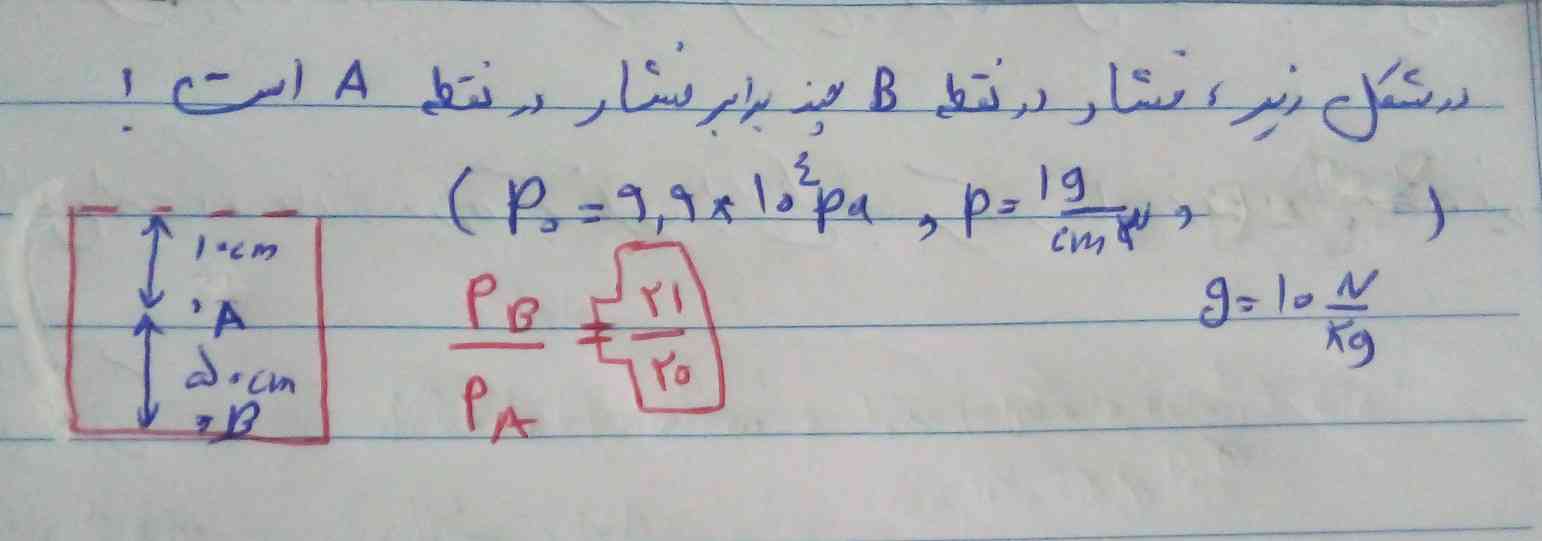 در شکل زیر، فشار در نقطه B چند برابر فشار در نقطه A است !
( P₀ = ۹,۹ × ۱۰² pa , ρ = ۱ g/cm۳ ,       )
g = ۱۰ N/kg
۱۰cm
A
۵۰cm
B
P_B / P_A = ۲۱/۲۰